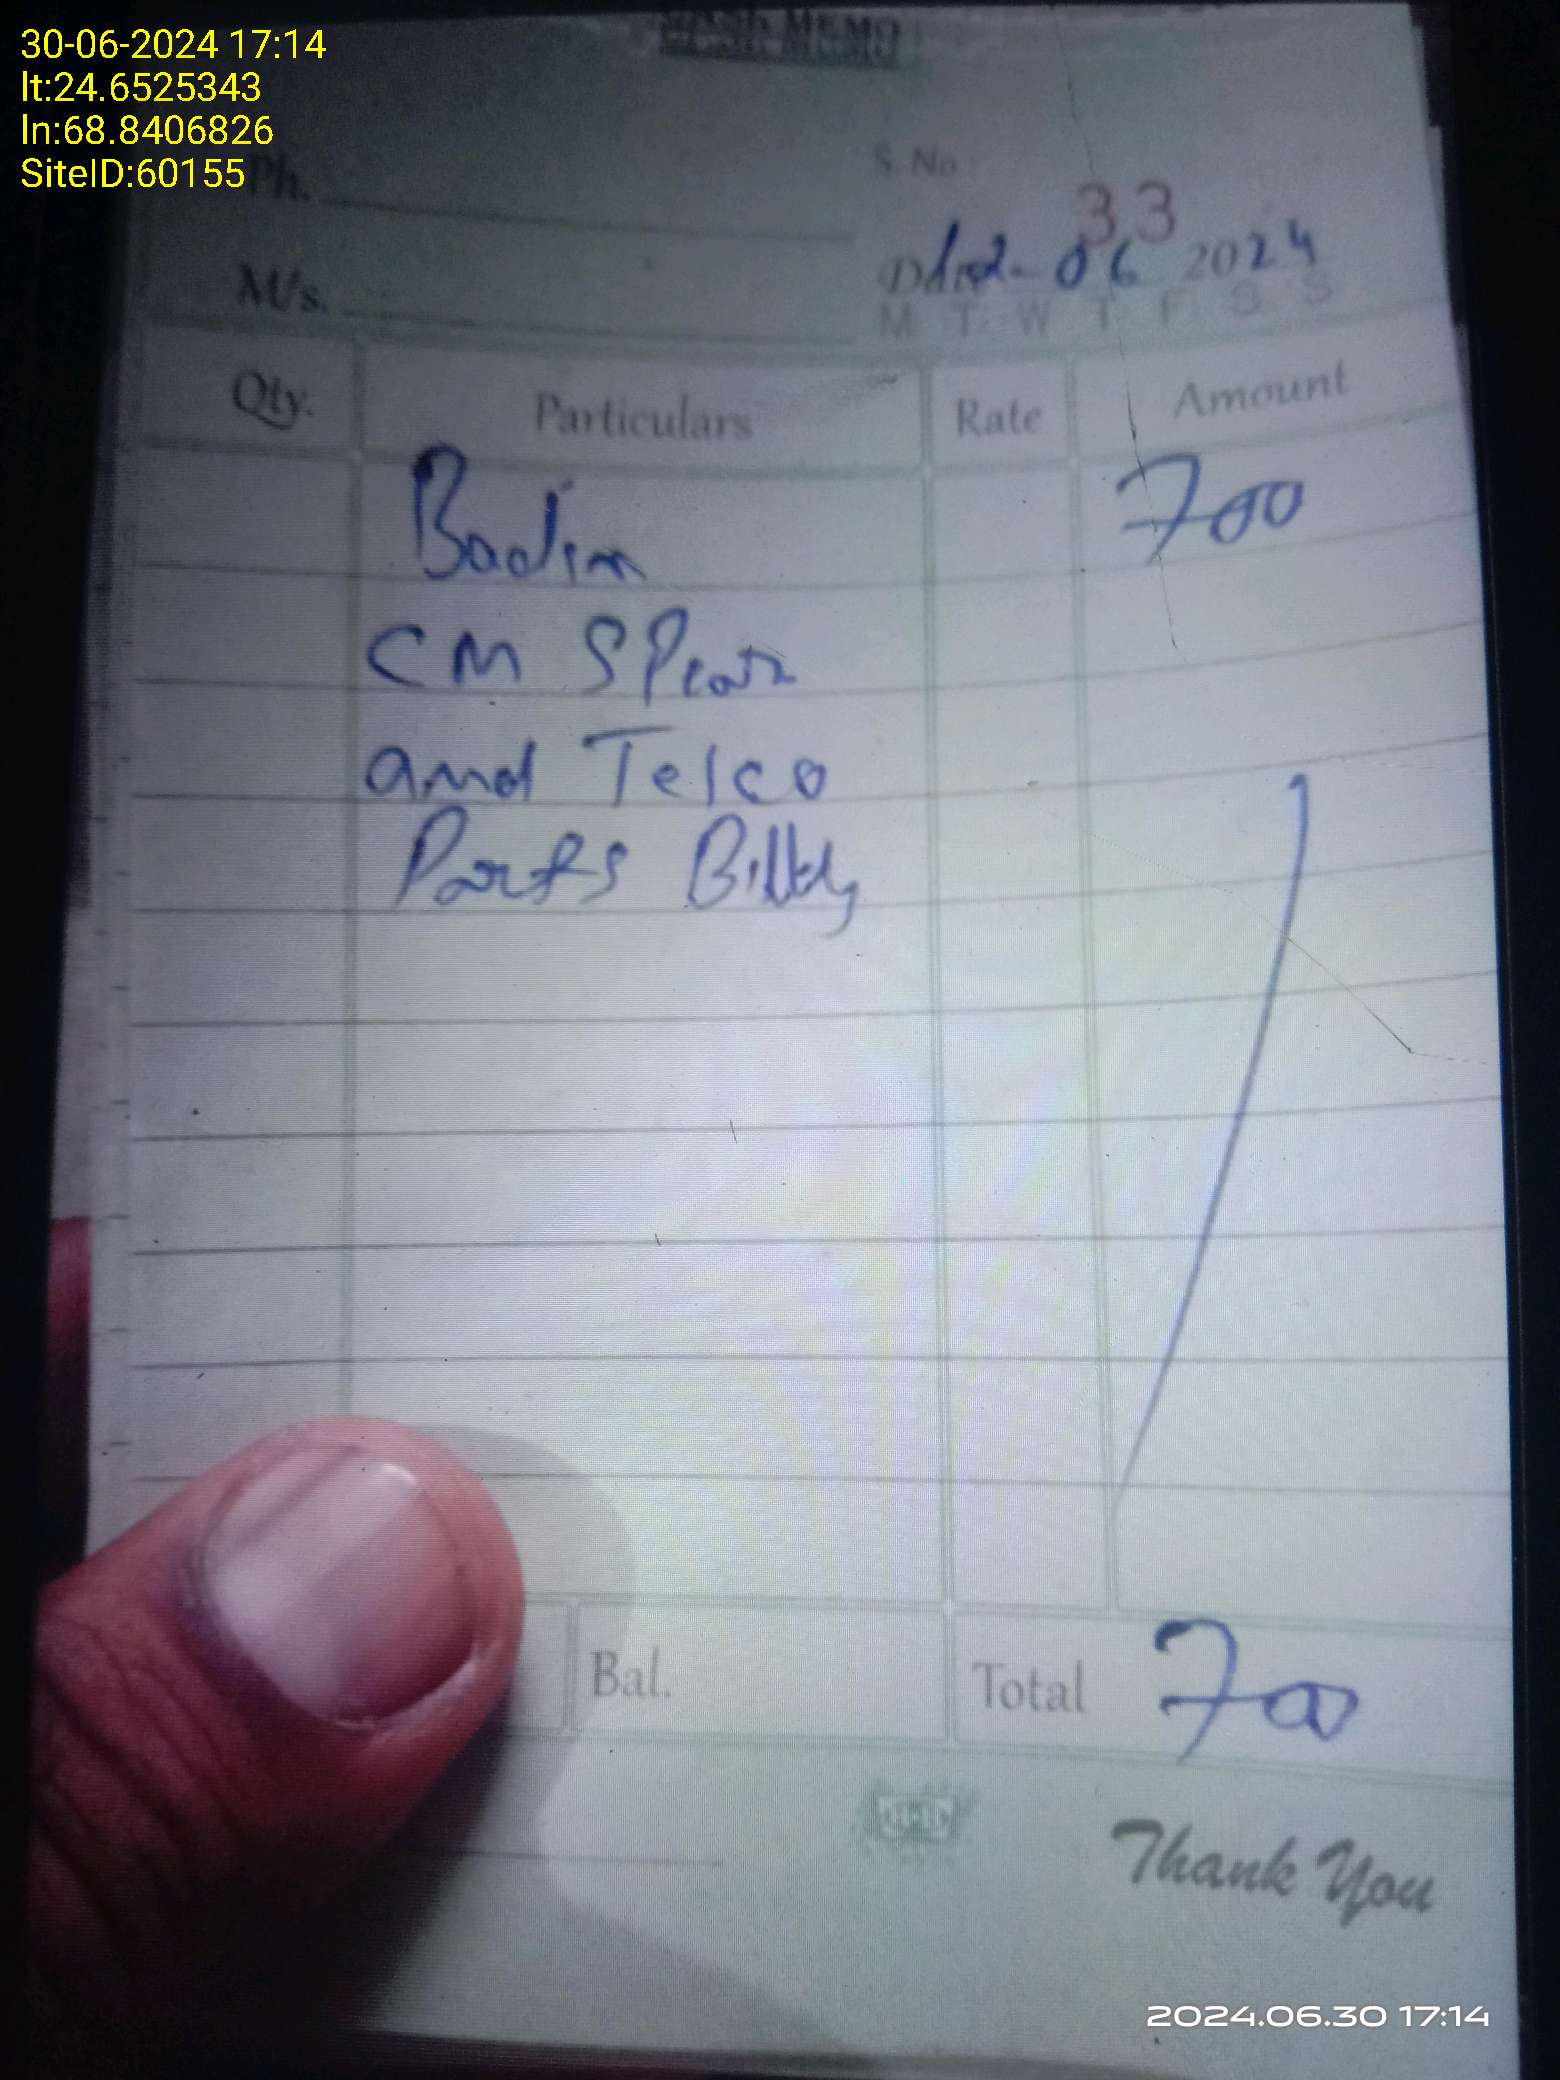 30-06-2024 17:14
lt:24.6525343
ln:68.8406826
SiteID:60155
MEMO
Ph.
S. No
33
M/s.
06 2024
M T W T F S S
Qty. Particulars Rate Amount
Badin 700
CM
and Telco
Parts Billty
Bal. Total 700
Thank You
2024.06.30 17:14